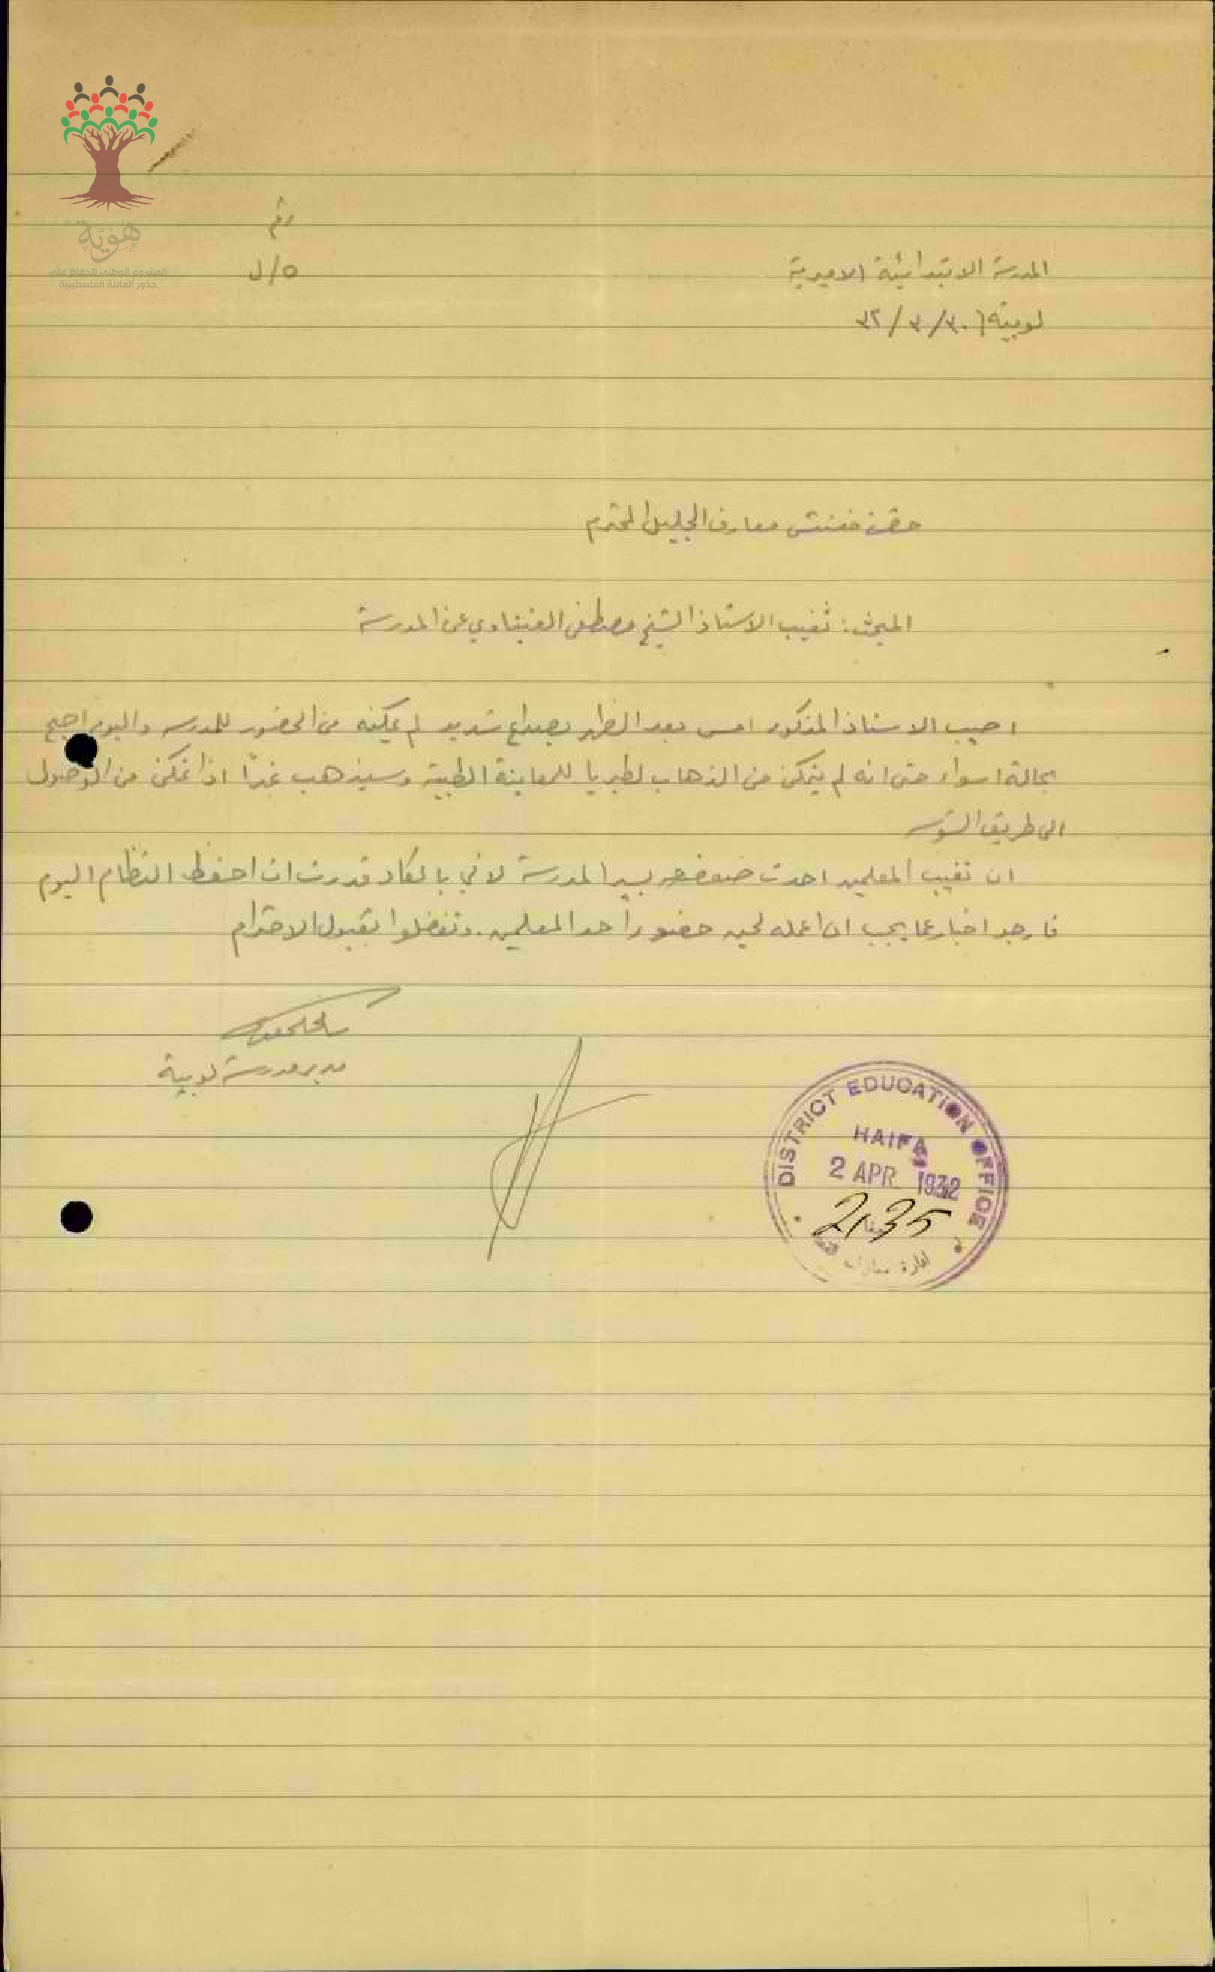 هوية
المشروع الوطني للحفاظ على
جذور العائلة الفلسطينية
رقم
٥/ل
المدرسة الابتدائية الاميرية
لوبية ٣٠/٣/٣٢
حضرة مفتش معارف الجليل المحترم
المبحث: تغيب الاستاذ الشيخ مصطفى عن المدرسة
اصيب الاستاذ المذكور امس بعد الظهر بصداع شديد لم يمكنه من الحضور للمدرسه واليوم اصبح
بحالة اسواء حتى انه لم يتمكن من الذهاب لطبريا للمعاينة الطبية وسيذهب غداً اذا تمكن من الوصول
الى طريق
ان تغيب المعلمين احدث بسير المدرسة لاني بالكاد قدرت ان احفظ النظام اليوم
فارجو اخباري عما يجب ان اعمله لحين حضور احد المعلمين. وتفضلوا بقبول الاحترام
مدير مدرسة لوبية
DISTRICT EDUCATION OFFICE
HAIFA
2 APR 1932
2135
حيفا
ادارة معارف